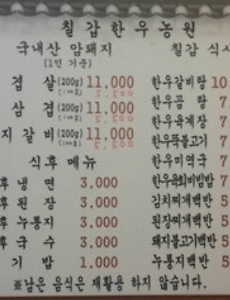 칠갑한우농원
국내산 암돼지
(1인 기준)
겹 살 (200g) 11,000
5,500
삼 겹 (200g) 11,000
5,500
지 갈 비 (200g) 11,000
5,500
식후 메뉴
후 냉 면 3,000
후 된 장 3,000
후 누룽지 3,000
후 국 수 3,000
기 밥 1,000
칠갑 식사
한우갈비탕 10
한우곰 탕 7
한우육계장 7
한우뚝불고기 7
한우미역국 7
한우육회비빔밥 7
김치찌개백반 5
된장찌개백반 5
돼지불고기백반 5
누룽지백반 5
※남은 음식은 재활용 하지 않습니다.